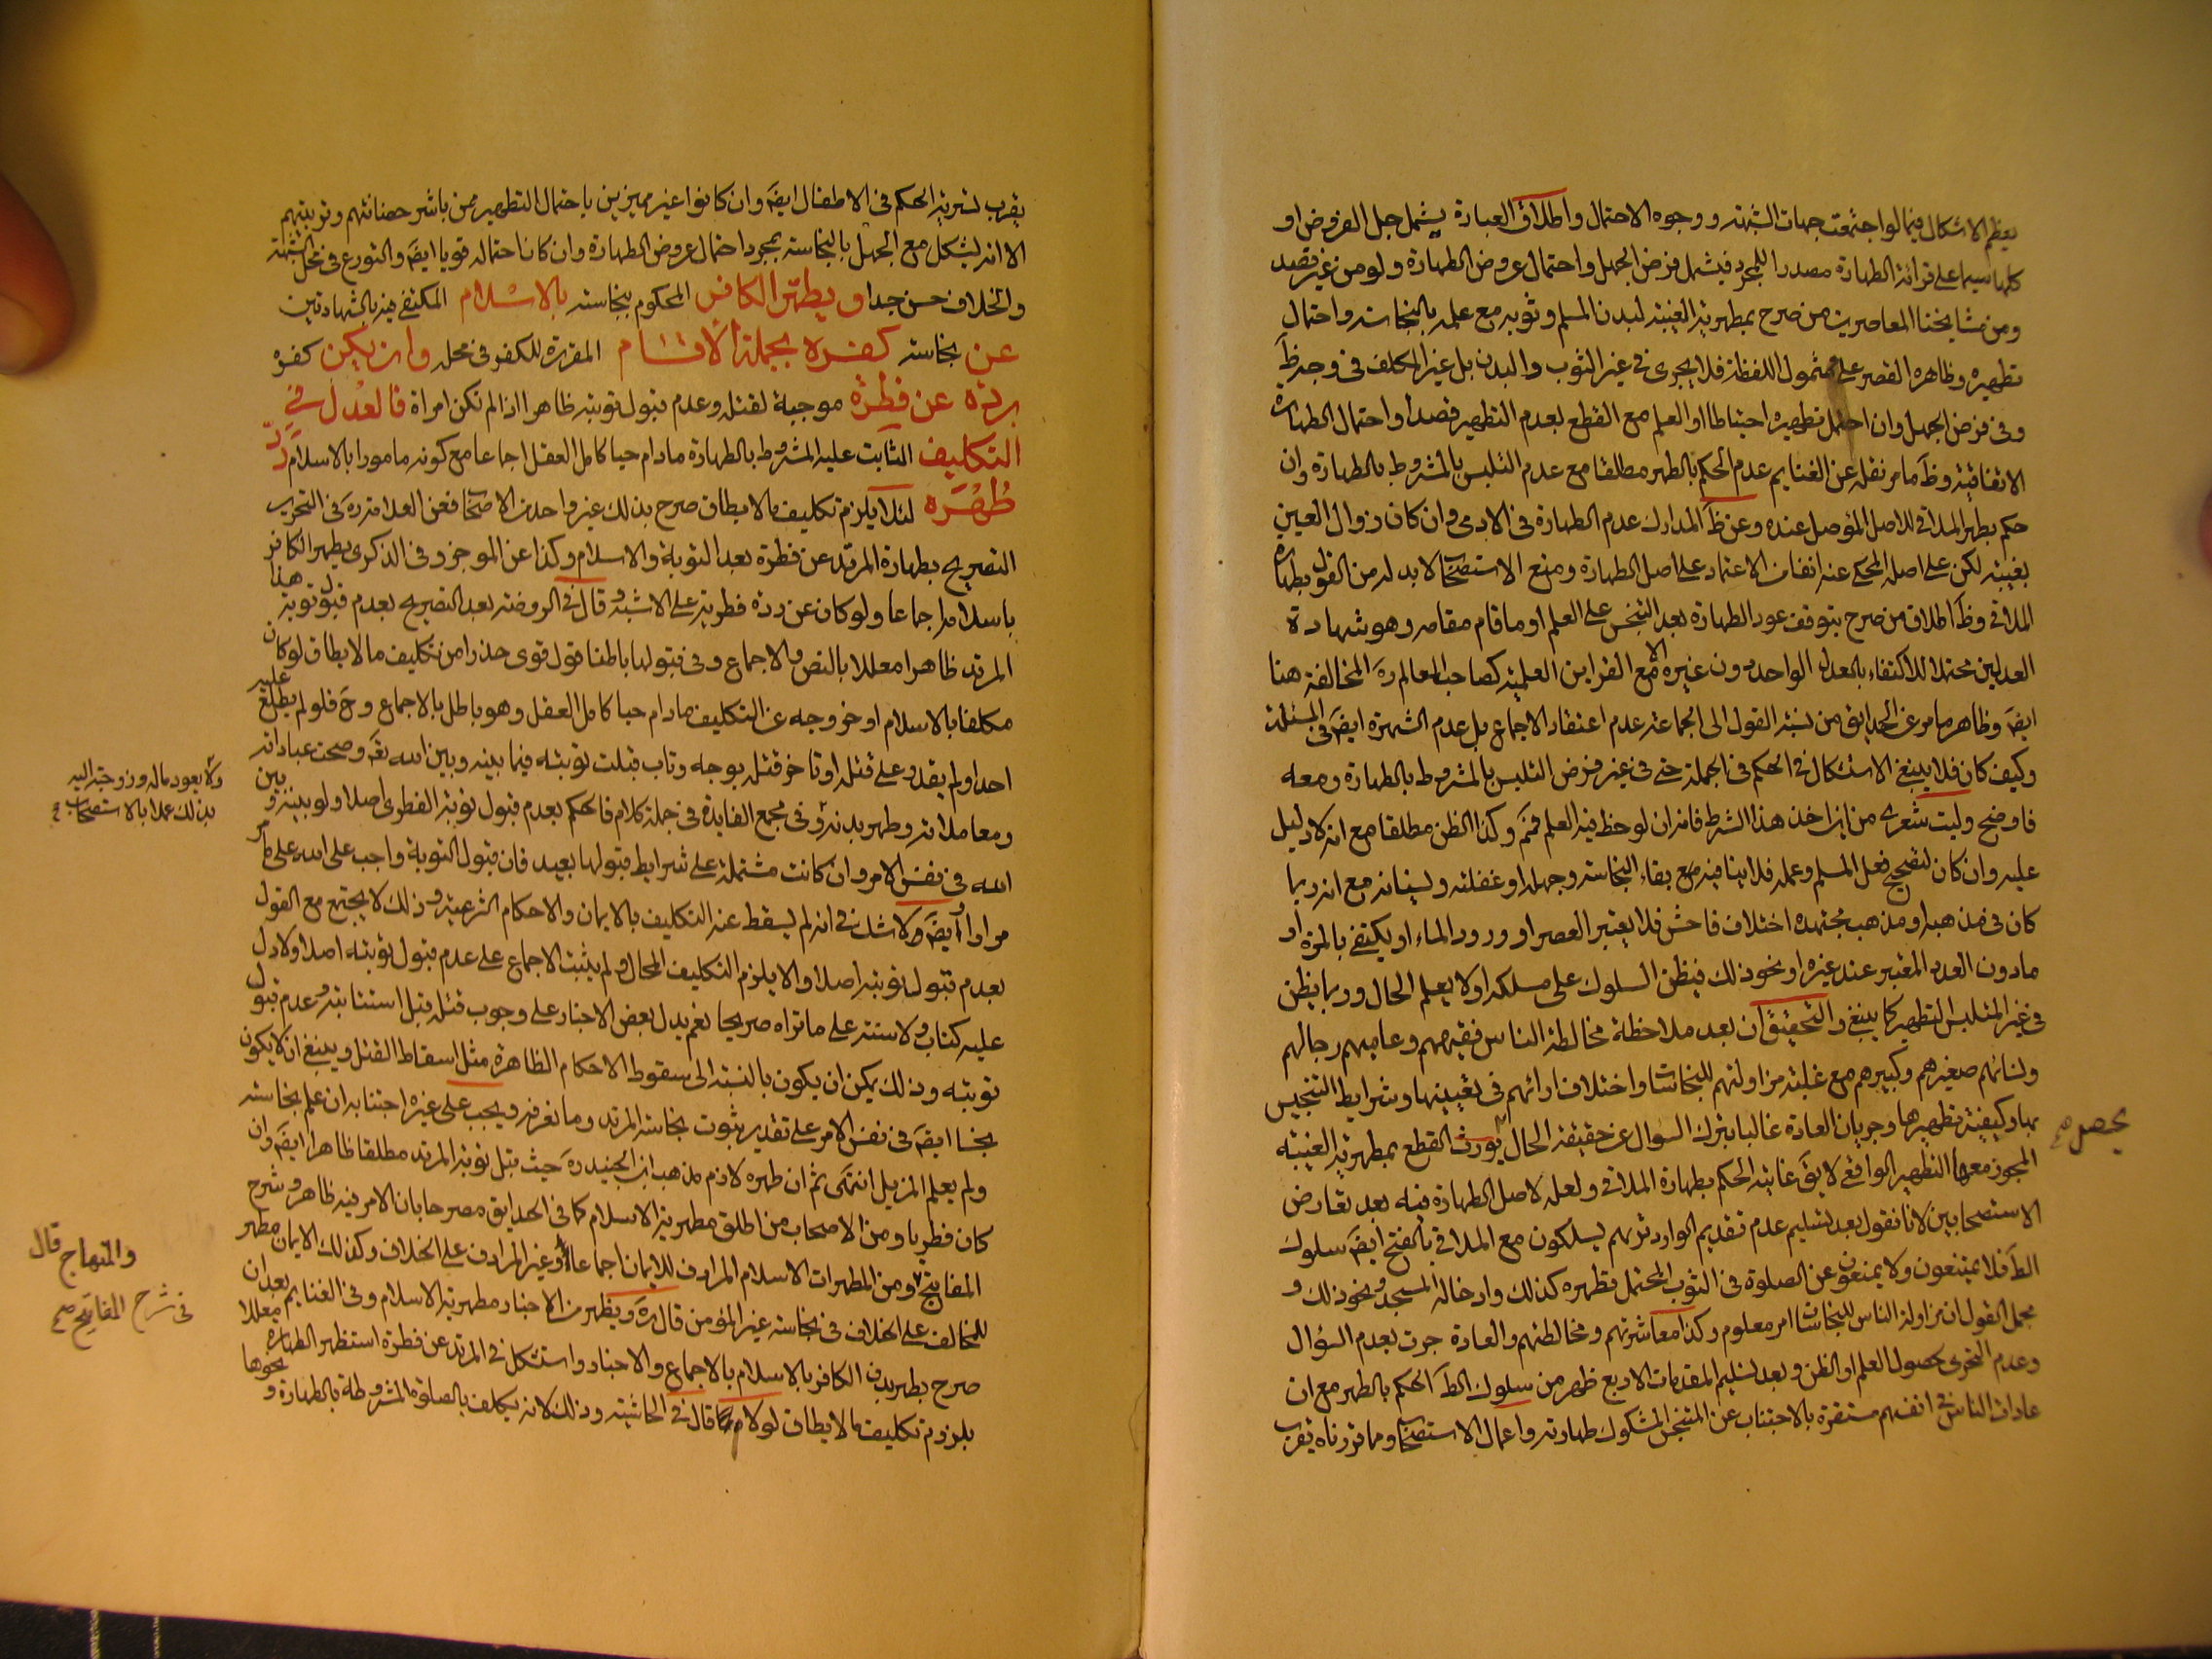 يعظم الاشكال فيما لو اجتمعت جهات الشبهة ووجوه الاحتمال واطلاق العبارة يشمل جل الفروض او
كلها سيما على قرائة الطهارة مصدرا للمجرد فيشمل فرض الجهل واحتمال عروض الطهارة ولو من غير قصد
ومن مشايخنا المعاصرين من صرح بمطهرية الغيبة لبدن المسلم وثوبه مع علمه بالنجاسة واحتمال
تطهيره وظاهره القصر على شمول اللفظة فلا يجرى فى غير الثوب والبدن بل غير المكلف فى وجه
وفى فرض الجهل وان احتمل تطهيره احتياطا او العلم مع القطع بعدم التطهير قصدا واحتمال الطهارة
الاتفاقية وظ ما مر نقله عن الغنايم عدم الحكم بالطهر مطلقا مع عدم التلبس بالمشروط بالطهارة وان
حكم بطهر الملاقى للاصل المؤصل عنده وعن ظ المدارك عدم الطهارة فى الادمى وان كان زوال العين
بغيبته لكن على اصله المحكى عنه اتفاق الاعتماد على اصل الطهارة ومنع الاستصحاب لا بد له من القول بطهارة
الملاقى وظ اطلاق من صرح بتوقف عود الطهارة بعد التنجس على العلم او ما قام مقامه وهو شهادة
العدلين محتملا للاكتفاء بالعدل الواحد دون غيره الا مع القراين العلمية كصاحب المعالم ره المخالفة هنا
ايضا وظاهر ما مر عن الحدايق من نسبة القول الى الجماعة عدم اعتقاد الاجماع بل عدم الشهرة ايضا فى المسئلة
وكيف كان فلا ينبغى الاشكال فى الحكم فى الجملة حتى فى غير فرض التلبس بالمشروط بالطهارة ومعه
فاوضح وليت شعرى من اين اخذ هذا الشرط فانه ان لوحظ فيه العلم فمم وكذا الظن مطلقا مع انه لا دليل
عليه وان كان لتصحيح فعل المسلم وعمله فلا ينافيه مع بقاء النجاسة وجهله او غفلته ونسيانه مع انه ربما
كان فى مذهبه او مذهب مجتهده اختلاف فاحش فلا يعتبر العصر او ورود الماء او يكتفى بالمرة او
مادون العدد المعتبر عند غيره او نحو ذلك فيظن السلوك على مسلكه او لا يعلم الحال وربما يظن
فى غير المتلبس التطهير كما ينبغى والتحقيق ان بعد ملاحظة مخالطة الناس فقيههم وعاميهم رجالهم
ونسائهم صغيرهم وكبيرهم مع غلبة مزاولتهم للنجاسات واختلاف ارائهم فى تعيينها وشرايط التنجيس
بها وكيفية تطهيرها وجريان العادة غالبا بترك السؤال عن حقيقة الحال يورث القطع بمطهرية الغيبة
يحصل صح
المجوز معها التطهير الواقعى لا يق غايته الحكم بطهارة الملاقى ولعله لاصل الطهارة فيه بعد تعارض
الاستصحابين لانا نقول بعد تسليم عدم تقديم الوارد تريهم يسلكون مع الملاقى بالفتح ايضا سلوك
الط فلا يمتنعون ولا يمنعون عن الصلوة فى الثوب المحتمل تطهره كذلك وادخاله المسجد ونحو ذلك و
مجمل القول ان مزاولة الناس للنجاسات امر معلوم وكذا معاشرتهم ومخالطتهم والعادة جرت بعدم السؤال
وعدم التحرى لحصول العلم او الظن وبعد تسليم المقدمات الاربع ظهر من سلوك الط الحكم بالطهر مع ان
عادات الناس فى انفسهم مستقرة بالاجتناب عن المتنجس المشكوك طهارته واعمال الاستصحاب ومما قررناه يقرب
يقرب تسرية الحكم فى الاطفال ايضا وان كانوا غير مميزين باحتمال التطهير ممن باشر حضانتهم وتربيتهم
الا انه يشكل مع الجهل بالنجاسة بمجرد احتمال عروض الطهارة وان كان احتماله قويا ايضا والتورع فى محل الشبهة
والخلاف حسن جدا و يطهر الكافر المحكوم بنجاسته بالاسلام المكتفى فيه بالشهادتين
عن نجاسة كفره بجملة الاقسام المقررة للكفر فى محله وان يكن كفره
بردة عن فطرة موجبة لقتله وعدم قبول توبته ظاهرا اذا لم تكن امراة فالعدل فى
التكليف الثابت عليه المشروط بالطهارة مادام حيا كامل العقل اجماعا مع كونه مامورا بالاسلام رد
طهره لئلا يلزم تكليف ما لا يطاق صرح بذلك غير واحد من الاصحاب فعن العلامة ره فى التحرير
التصريح بطهارة المرتد عن فطرة بعد التوبة والاسلام وكذا عن الموجز وفى الذكرى يطهر الكافر
باسلامه اجماعا ولو كان عن ردة فطرية على الاشبه وقال فى الروضة بعد التصريح بعدم قبول توبة هذا
المرتد ظاهرا معللا بالنص والاجماع وفى قبولها باطنا قول قوى حذرا من تكليف ما لا يطاق لو كان
مكلفا بالاسلام او خروجه عن التكليف مادام حيا كامل العقل وهو باطل بالاجماع وح فلو لم يطلع عليه
احد او لم يقدر على قتله او تاخر قتله بوجه وتاب قبلت توبته فيما بينه وبين الله تع وصحت عباداته
ومعاملاته وطهر بدنه وفى مجمع الفايدة فى جملة كلام فالحكم بعدم قبول توبة الفطرى اصلا ولو بينه وبين
ولا يعود ماله وزوجته اليه
بذلك عملا بالاستصحاب صح
الله فى نفس الامر وان كانت مشتملة على شرايط قبولها بعيد فان قبول التوبة واجب على الله على ما مر
مرارا وايضا لا شك فى انه لم يسقط عنه التكليف بالايمان والاحكام الشرعية وذلك لا يجتمع مع القول
بعدم قبول توبته اصلا والا يلزم التكليف المحال ولم يثبت الاجماع على عدم قبول توبته اصلا ولا دل
عليه كتاب ولا سنة على ما تراه صريحا نعم يدل بعض الاخبار على وجوب قتله قبل استتابته وعدم قبول
توبته وذلك يمكن ان يكون بالنسبة الى سقوط الاحكام الظاهرة مثل اسقاط القتل وينبغى ان لا يكون
نجسا ايضا فى نفس الامر على تقدير ثبوت نجاسة المرتد وما نعرفه ويجب على غيره اجتنابه ان علم نجاسته
ولم يعلم المزيل انتهى ثم ان طهره لازم مذهب ابن الجنيد ره حيث قبل توبة المرتد مطلقا ظاهرا ايضا وان
كان فطريا ومن الاصحاب من اطلق مطهرية الاسلام كما فى الحدايق مصرحا بان الامر فيه ظاهر وشرح
المفاتيح ومن المطهرات الاسلام المرادف للايمان اجماعا وغير المرادف على الخلاف وكذلك الايمان مطهر
والمنهاج قال
فى شرح المفاتيح صح
للمخالف على الخلاف فى نجاسة غير المؤمن قال ره ويظهر من الاخبار مطهرية الاسلام وفى الغنايم بعد ان
صرح بطهر بدن الكافر بالاسلام بالاجماع والاخبار واستشكل فى المرتد عن فطرة استظهر الطهارة معللا
بلزوم تكليف ما لا يطاق لولاه قال فى الحاشية وذلك لانه يكلف بالصلوة المشروطة بالطهارة و نحوها